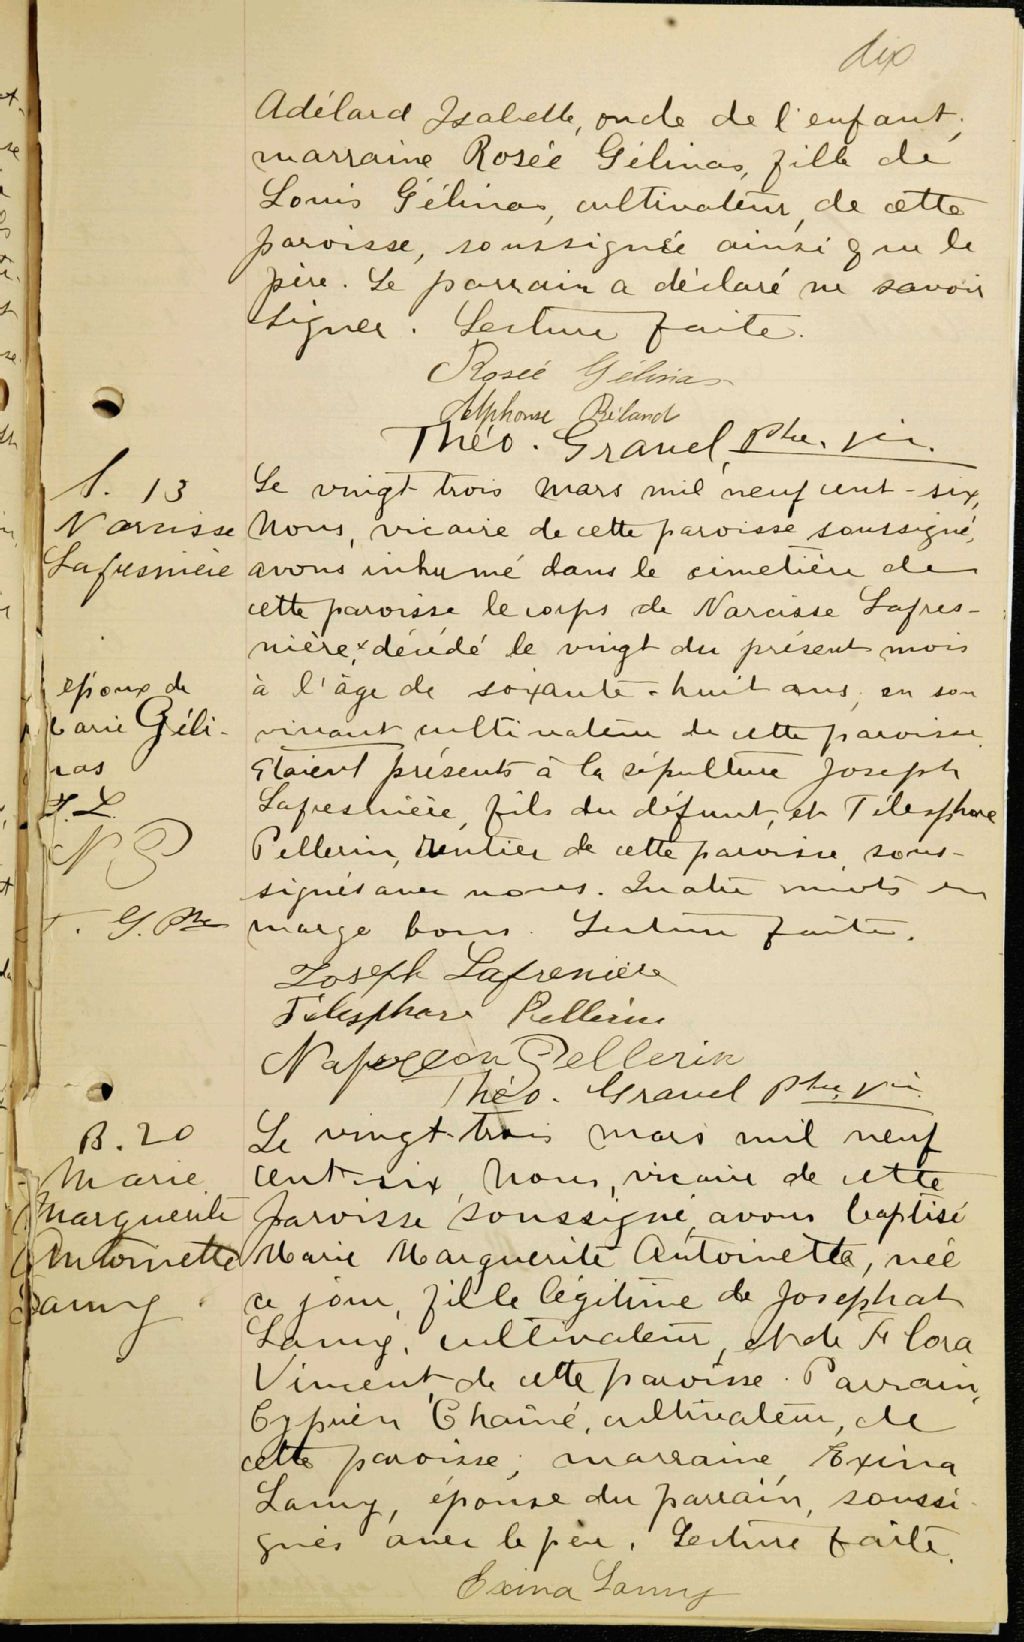 dix
Adélard Isabelle, oncle de l'enfant,
marraine Rosée Gélinas, fille de
Louis Gélinas, cultivateur, de cette
paroisse, soussignée ainsi que le
père. Le parrain a déclaré ne savoir
signer. Lecture faite.
Rosée Gélinas
Alphonse Béland
Théo. Gravel, Ptre, vic.
S. 13
Narcisse
Lafresnière
Le vingt-trois mars mil neuf cent-six,
Nous, vicaire de cette paroisse soussigné,
avons inhumé dans le cimetière de
cette paroisse le corps de Narcisse Lafres-
nière,x décédé le vingt du présent mois
à l'âge de soixante-huit ans, en son
vivant cultivateur de cette paroisse.
Etaient présents à la sépulture Joseph
Lafresnière, fils du défunt, et Télesphore
Pellerin, rentier de cette paroisse, sous-
signés avec nous. Quatre mots en
marge bons. Lecture faite.
époux de
Marie Géli-
nas
J. L.
N P
T. G. Ptre
Joseph Lafreniere
Télesphore Pellerin
Napoleon Pellerin
Théo. Gravel Ptre, vic.
B. 20
Marie
Marguerite
Antoinette
Lamy
Le vingt-trois mars mil neuf
cent-six, Nous, vicaire de cette
paroisse soussigné, avons baptisé
Marie Marguerite Antoinette, née
ce jour, fille légitime de Josephat
Lamy, cultivateur, et de Flora
Vincent, de cette paroisse. Parrain,
Cyprien Chaîné, cultivateur, de
cette paroisse; marraine, Exina
Lamy, épouse du parrain, soussi-
gnés avec le père. Lecture faite.
Exina Lamy